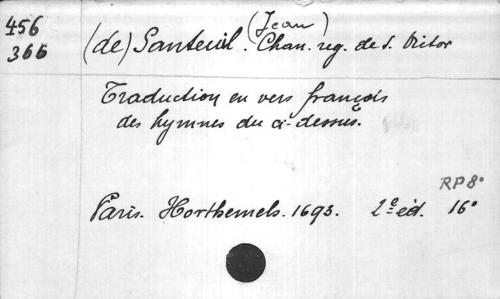 456
366
(de) Santeuil. (Jean) Chan. reg. de S. Victor
Traduction en vers françois
des hymnes du ci-dessus.
RP 8°
Paris. Horthemels. 1693. 2e éd. 16°